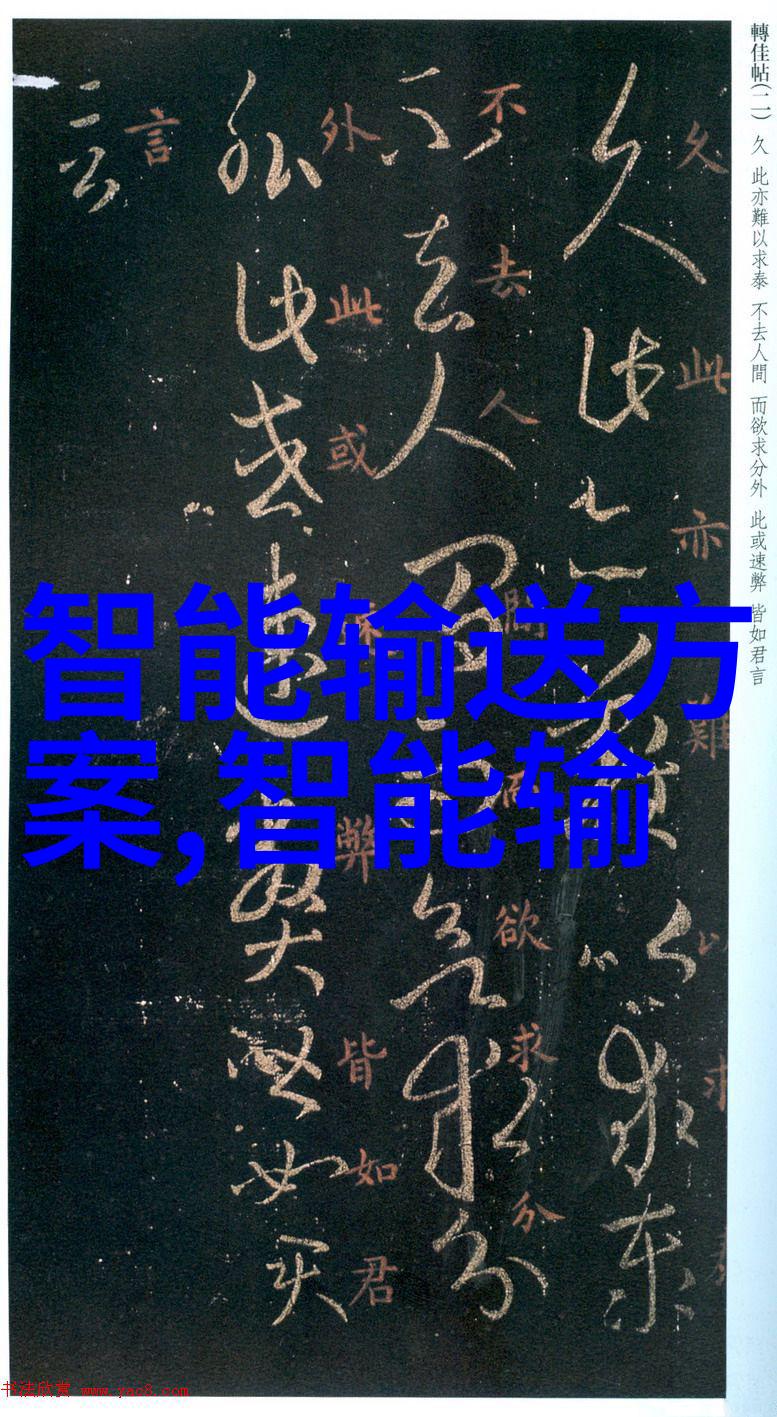 轉佳帖(二) 久 此亦難以求泰 不去人間 而欲求分外 此或速弊 皆如君言
久此亦難以求
不去人間而欲求分
外此或速弊皆如君
言
智能输送方
案,智能输
书法欣赏 www.yac8.com